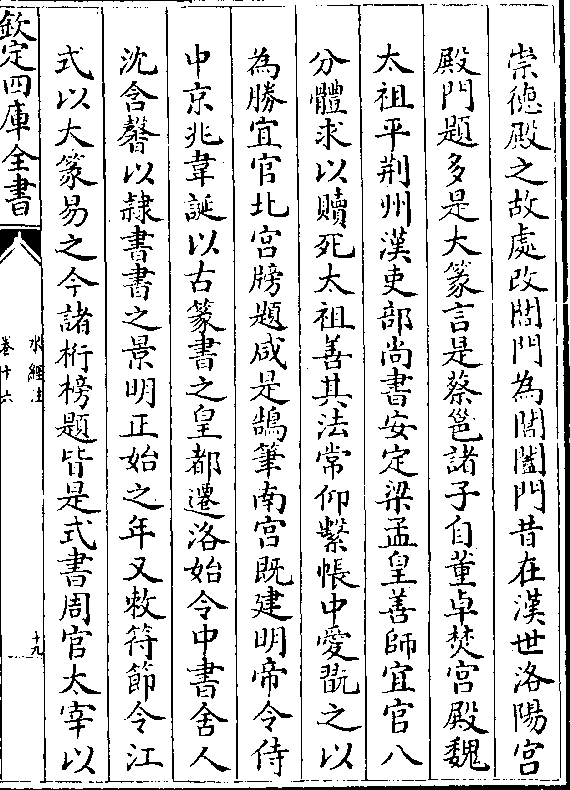 崇徳殿之故處改閶門為閶闔門昔在漢世洛陽宮
殿門題多是大篆言是蔡邕諸子自董卓焚宮殿魏
太祖平荆州漢吏部尚書安定梁孟皇善師宜官八
分體求以贖死太祖善其法常仰繫帳中愛翫之以
為勝宜官北宮牓題咸是鵠筆南宮既建明帝令侍
中京兆韋誕以古篆書之皇都遷洛始令中書舍人
沈含馨以隷書書之景明正始之年又敕符節令江
式以大篆易之今諸桁榜題皆是式書周官太宰以
欽定四庫全書
水經注
卷十六
十九